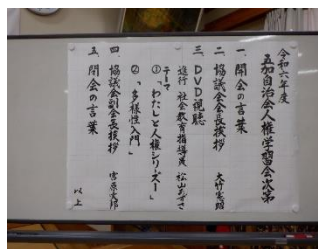 令和六年度
五加自治会人権学習会次第
一 開会の言葉
二 協議会会長挨拶 大竹
三 DVD視聴
進行 社会教育指導員 松山あずさ
テーマ
①「わたしと人権シリーズー」
②「多様性入門」
四 協議会副会長挨拶 宮原文郎
五 閉会の言葉
以上